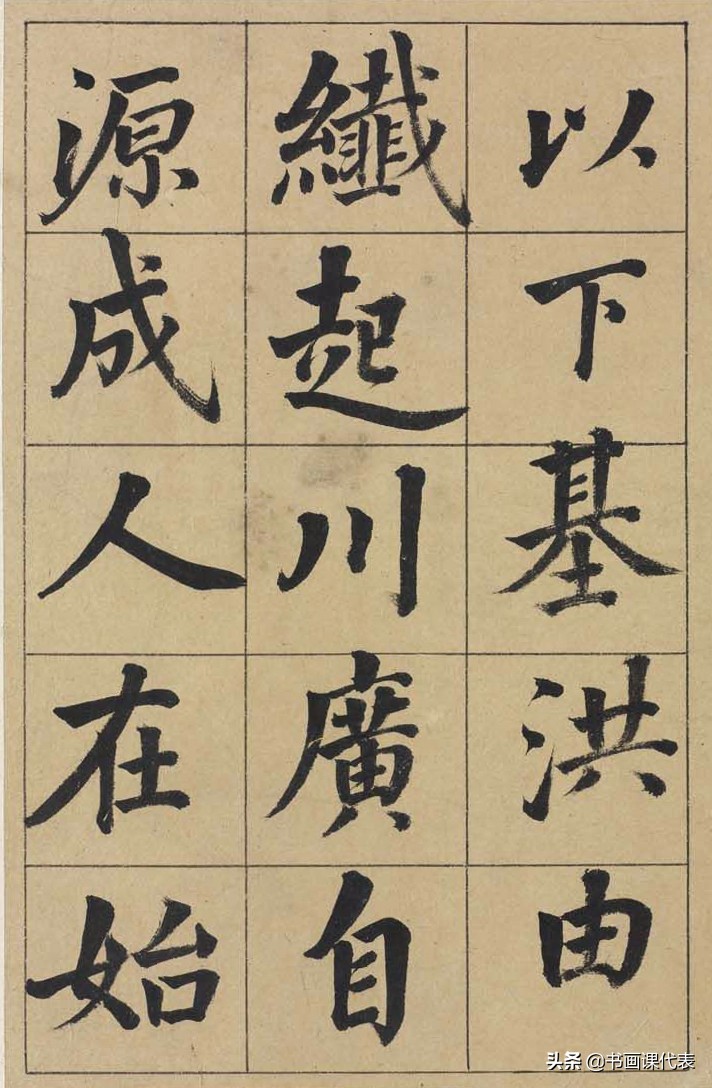 以下基洪由
纖起川廣自
源成人在始
头条 @书画课代表